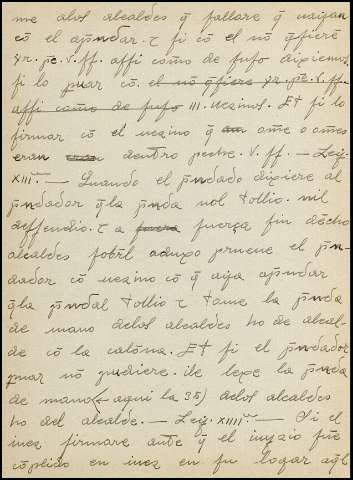 me alos alcaldes q̄ fallare q̄ uaian
cō el apn̄dar. τ si cō el nō q̄siere
yr. pe. v. ss. assi como de suso dixiemos
si lo puar cō. el nō q̄siere yr. pe. v. ss.
assi como de suso III. uezinos. Et si lo
firmar cō el uezino q̄ ome o omes
eran dentro peche. v. ss. — Ley
XIII. — Quando el pn̄dado dixiere al
pn̄dador q̄ la pn̄da nol tollio. nil
deffendio. τ a fuera fuerça sin dicho
alcaldes sobrl aduxo prueue el pn̄-
dador cō uezino cō q̄ aya apn̄dar
q̄ la pn̄dal tollio τ tome la pn̄da
de mano delos alcaldes ho de alcal-
de cō la calōna. Et si el pn̄dador
puar nō pudiere. ile lexe la pn̄da
de mano (aqui la 35) delos alcaldes
ho del alcalde. — Ley. XIIII. — Si el
iuez firmare ante q̄ el iuyzio sue
cōplido en iuez en su logar aq̄l